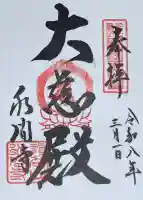 奉拝
令和八年
三月一日
大慈殿
寺